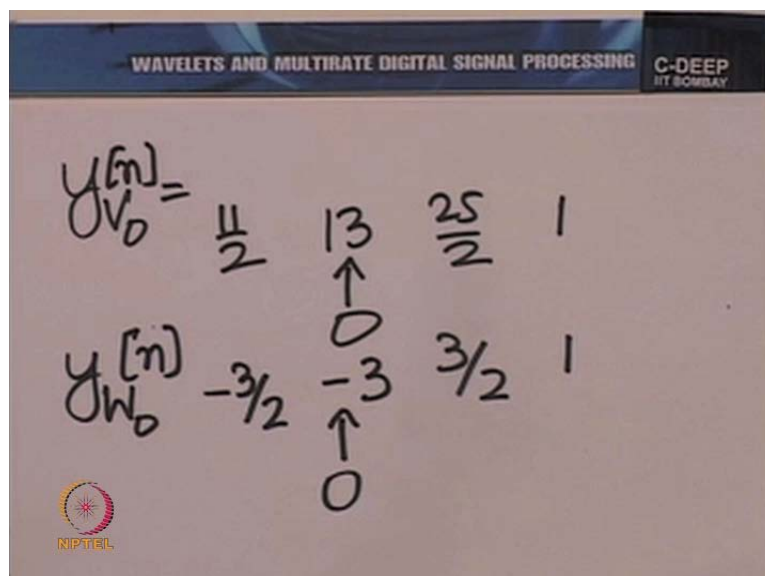 WAVELETS AND MULTIRATE DIGITAL SIGNAL PROCESSING
C-DEEP
IIT BOMBAY
y_{V_0}[n] = 11/2 13 25/2 1
↑
0
y_{W_0}[n] -3/2 -3 3/2 1
↑
0
NPTEL